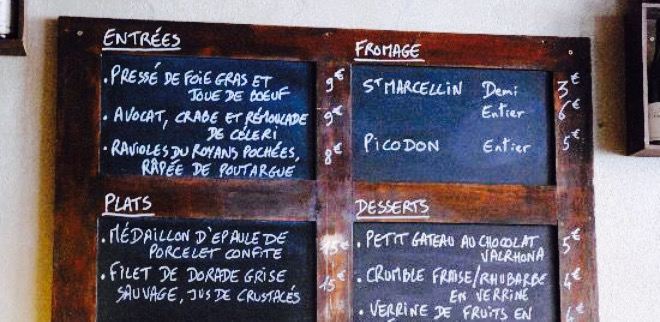 ENTRÉES
. PRESSÉ DE FOIE GRAS ET
JOUE DE BOEUF 9€
. AVOCAT, CRABE ET RÉMOULADE
DE CÉLERI 9€
. RAVIOLES DU ROYANS POCHÉES,
RÂPÉE DE POUTARGUE 8€
PLATS
. MÉDAILLON D'EPAULE DE
PORCELET CONFITE 15€
. FILET DE DORADE GRISE
SAUVAGE, JUS DE CRUSTACÉS 15€
FROMAGE
ST MARCELLIN Demi 3€
Entier 6€
PICODON Entier 5€
DESSERTS
. PETIT GATEAU AU CHOCOLAT
VALRHONA 5€
. CRUMBLE FRAISE/RHUBARBE
EN VERRINE 4€
. VERRINE DE FRUITS EN